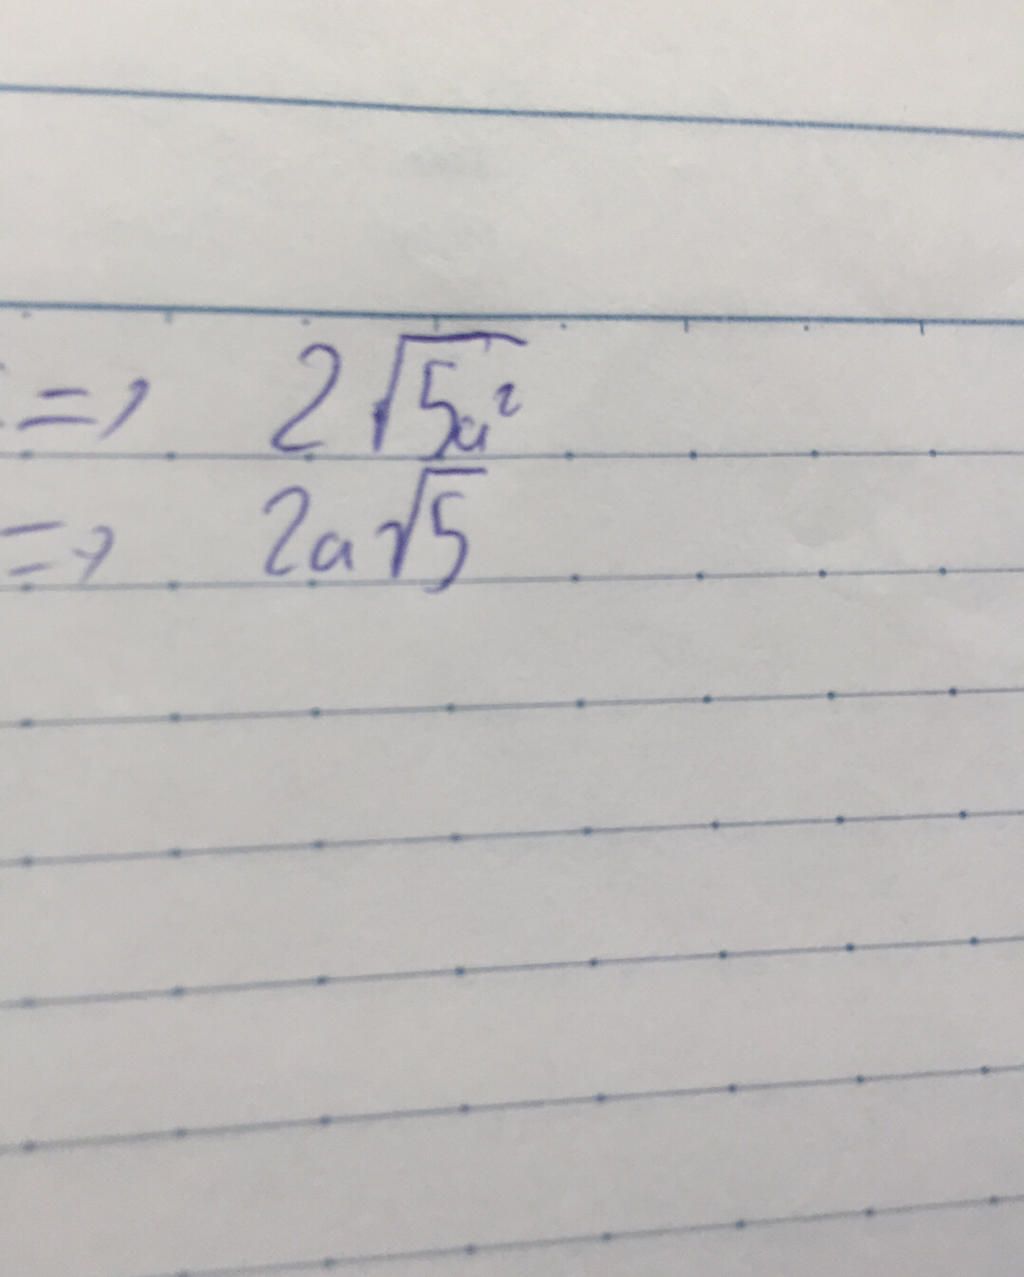 => 2√5a²
=> 2a√5